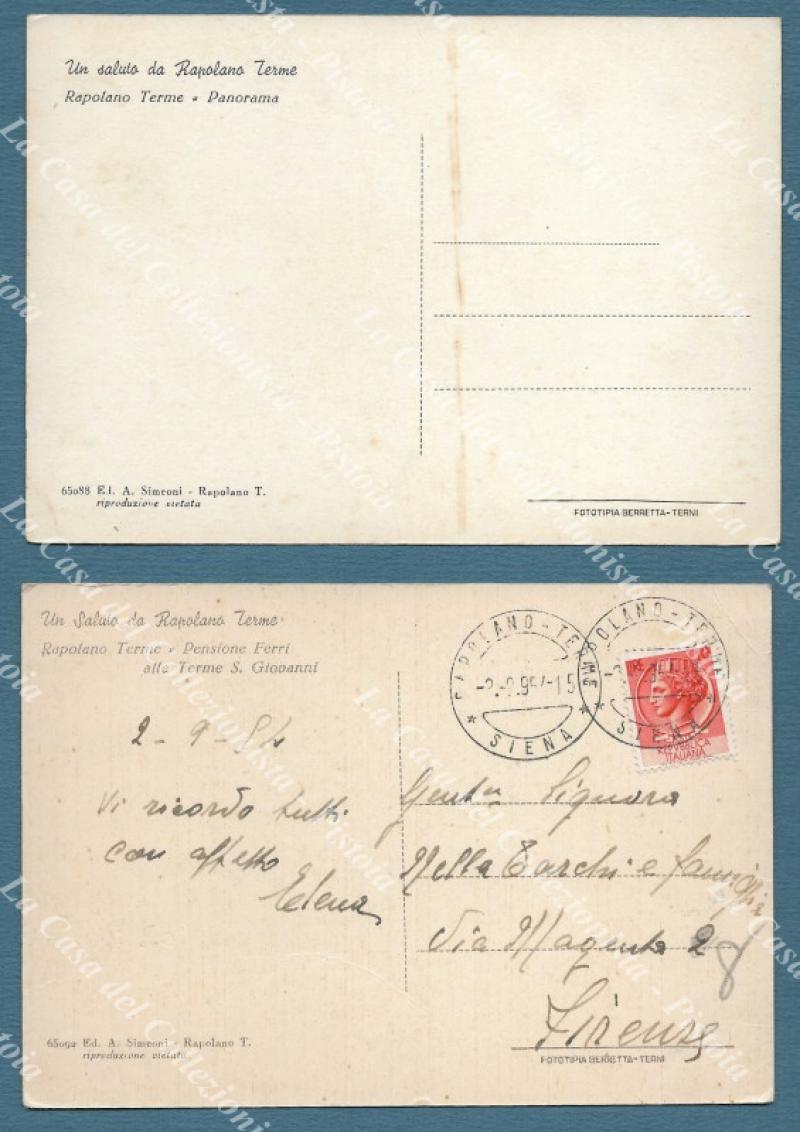 Un saluto da Rapolano Terme
Rapolano Terme - Panorama
65088 E.I. A. Simeoni - Rapolano T.
riproduzione vietata
FOTOTIPIA BERRETTA - TERNI
Un Saluto da Rapolano Terme
Rapolano Terme - Pensione Ferri
alle Terme S. Giovanni
RAPOLANO - TERME
-2.-9.954-15
* SIENA *
RAPOLANO - TERME
* SIENA *
REPUBBLICA
ITALIANA
2 - 9 - 54
Vi ricordo tutti
con affetto
Elena
Gent.ma Signora
Nella Tarchi e famiglia
Via Magenta 28
Firenze
65092 Ed. A. Simeoni - Rapolano T.
riproduzione vietata
FOTOTIPIA BERRETTA - TERNI
La Casa del Collezionista - Pistoia